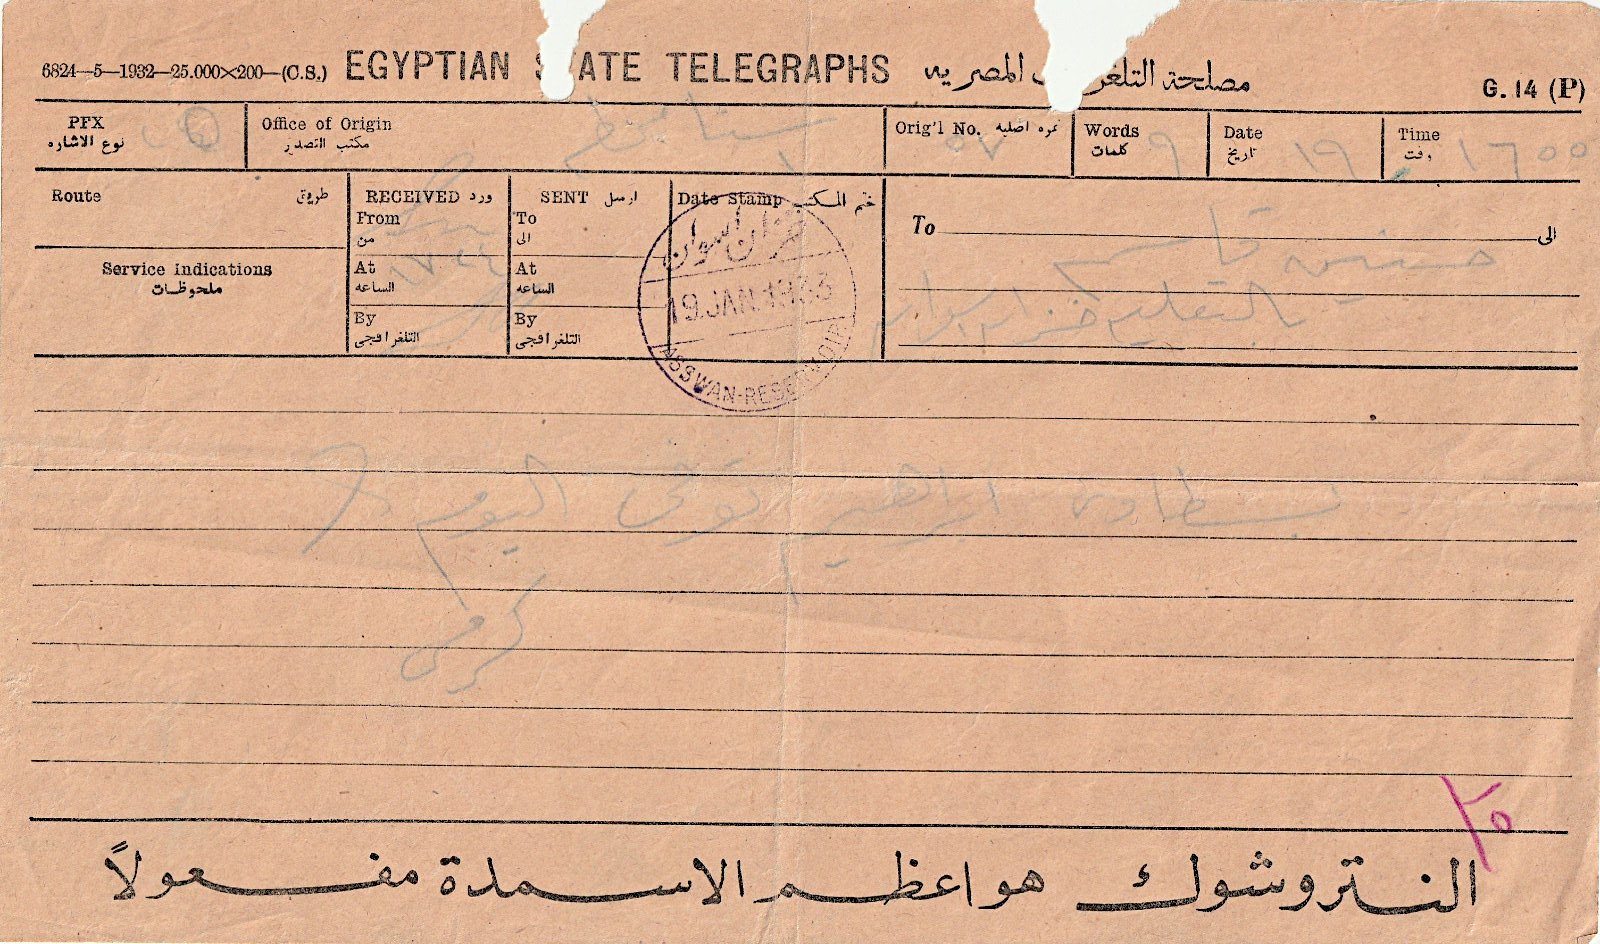 6824—5—1932—25.000×200—(C.S.) EGYPTIAN STATE TELEGRAPHS مصلحة التلغرافات المصريه G. 14 (P)
PFX Office of Origin Orig'l No. نمره اصليه Words Date Time
نوع الاشاره مكتب التصدير كلمات تاريخ وقت
٥٧ ٩ ١٩ ١٦ ٥٥
Route طريق RECEIVED ورد SENT ارسل Date Stamp ختم المكتب
From To To الى
من الى
Service Indications At At
ملحوظات الساعه الساعه
By By
التلغرافجى التلغرافجى
خزان اسوان
19.JAN.1933
ASSWAN-RESERVOIR
حسنين قاسم
بالتعليم خزان اسوان
بسطاوى ابراهيم توفى اليوم
كرمى
٢٥
النتروشوك هو اعظم الاسمدة مفعولاً